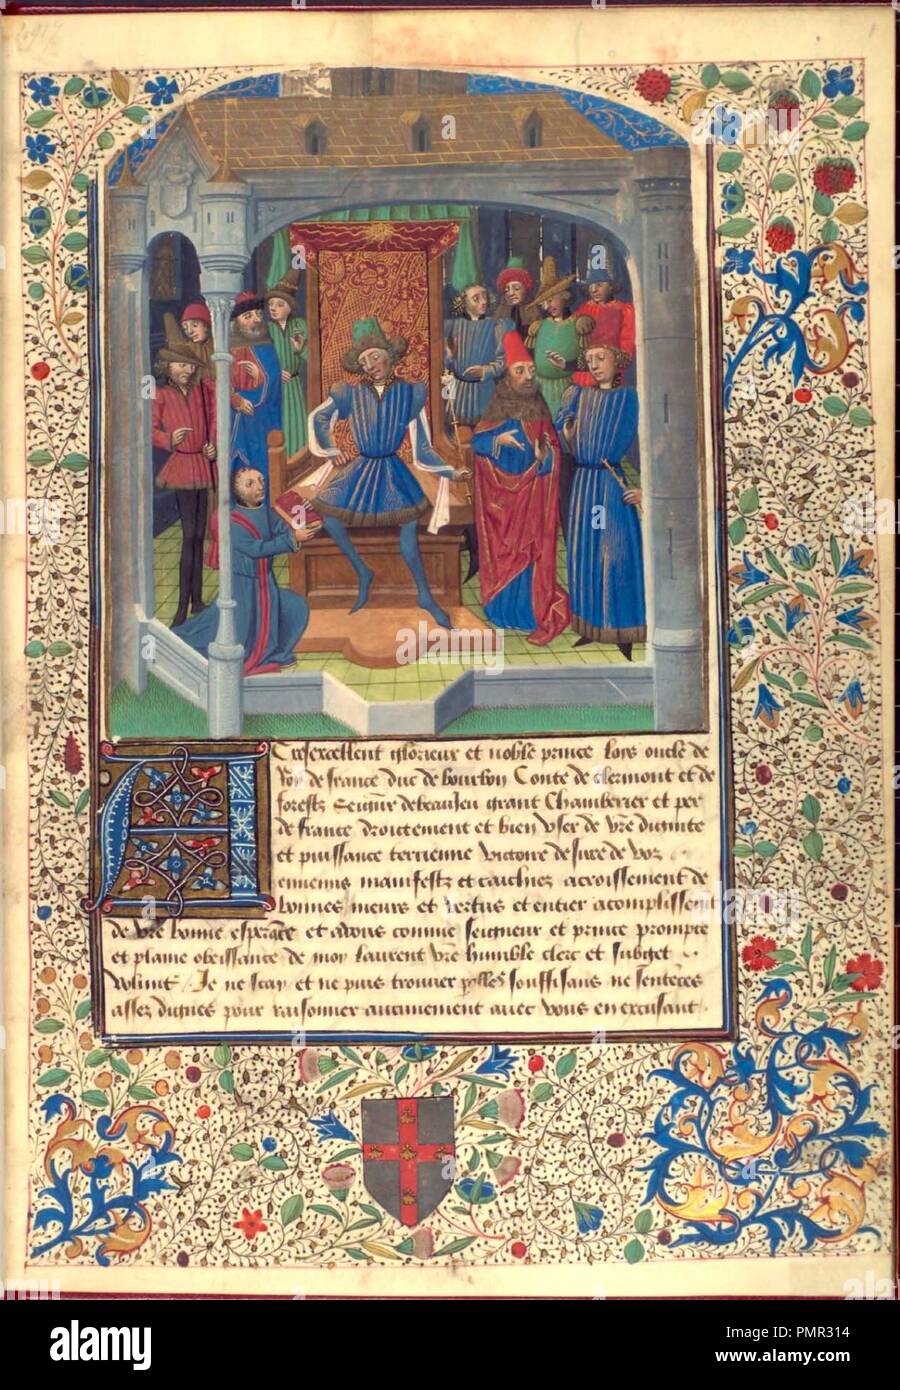 A Tresexcellent glorieux et noble prince loys oncle de
Roy de france duc de bourbon Conte de clermont et de
forestz Seigneur de beaujeu grant Chamberier et per
de france droictement et bien user de vre dignite
et puissance terrienne victoire desire de voz
ennemis manifestz et cachiez acroissement de
bonnes meurs et vertus et entier acomplissent
de vre bonne esperace et a vous comme seigneur et prince prompte
et plaine obeissance de moy laurent vre humble clerc et subget
volunt Je ne scay et ne puis trouver souffisans ne sentences
assez dignes pour raisonner aucunement avec vous en excusant
alamy
Image ID: PMR314
www.alamy.com